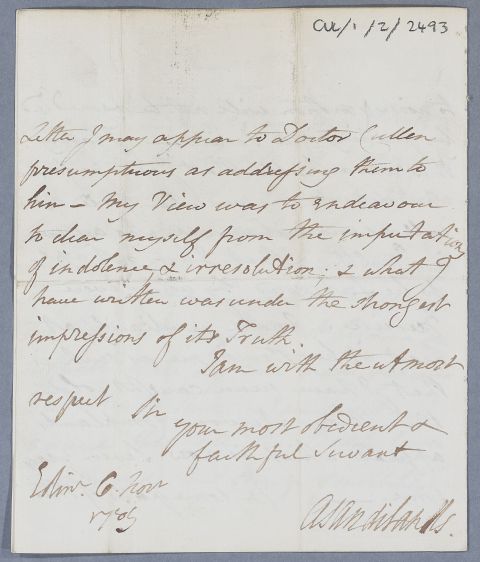 CUL/1/2/2493
Letter I may appear to Doctor Cullen
presumptuous as addressing them to
him – My View was to Endeavour
to clear myself from the imputation
of indolence & irresolution; & what I
have written was under the strongest
impressions of its Truth.
I am with the utmost
respect Sir
your most obedient &
faithful Servant
Edinr. 6. Novr
ASandilands.